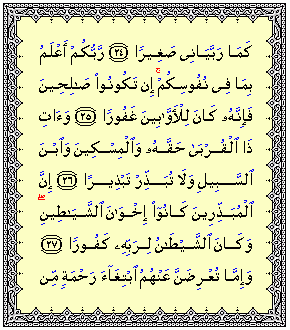 كَمَا رَبَّيَانِى صَغِيرًا ٢٤ رَّبُّكُمْ أَعْلَمُ
بِمَا فِى نُفُوسِكُمْ ۚ إِن تَكُونُوا۟ صَـٰلِحِينَ
فَإِنَّهُۥ كَانَ لِلْأَوَّٰبِينَ غَفُورًا ٢٥ وَءَاتِ
ذَا ٱلْقُرْبَىٰ حَقَّهُۥ وَٱلْمِسْكِينَ وَٱبْنَ
ٱلسَّبِيلِ وَلَا تُبَذِّرْ تَبْذِيرًا ٢٦ إِنَّ
ٱلْمُبَذِّرِينَ كَانُوٓا۟ إِخْوَٰنَ ٱلشَّيَـٰطِينِ ۖ
وَكَانَ ٱلشَّيْطَـٰنُ لِرَبِّهِۦ كَفُورًا ٢٧
وَإِمَّا تُعْرِضَنَّ عَنْهُمُ ٱبْتِغَآءَ رَحْمَةٍ مِّن